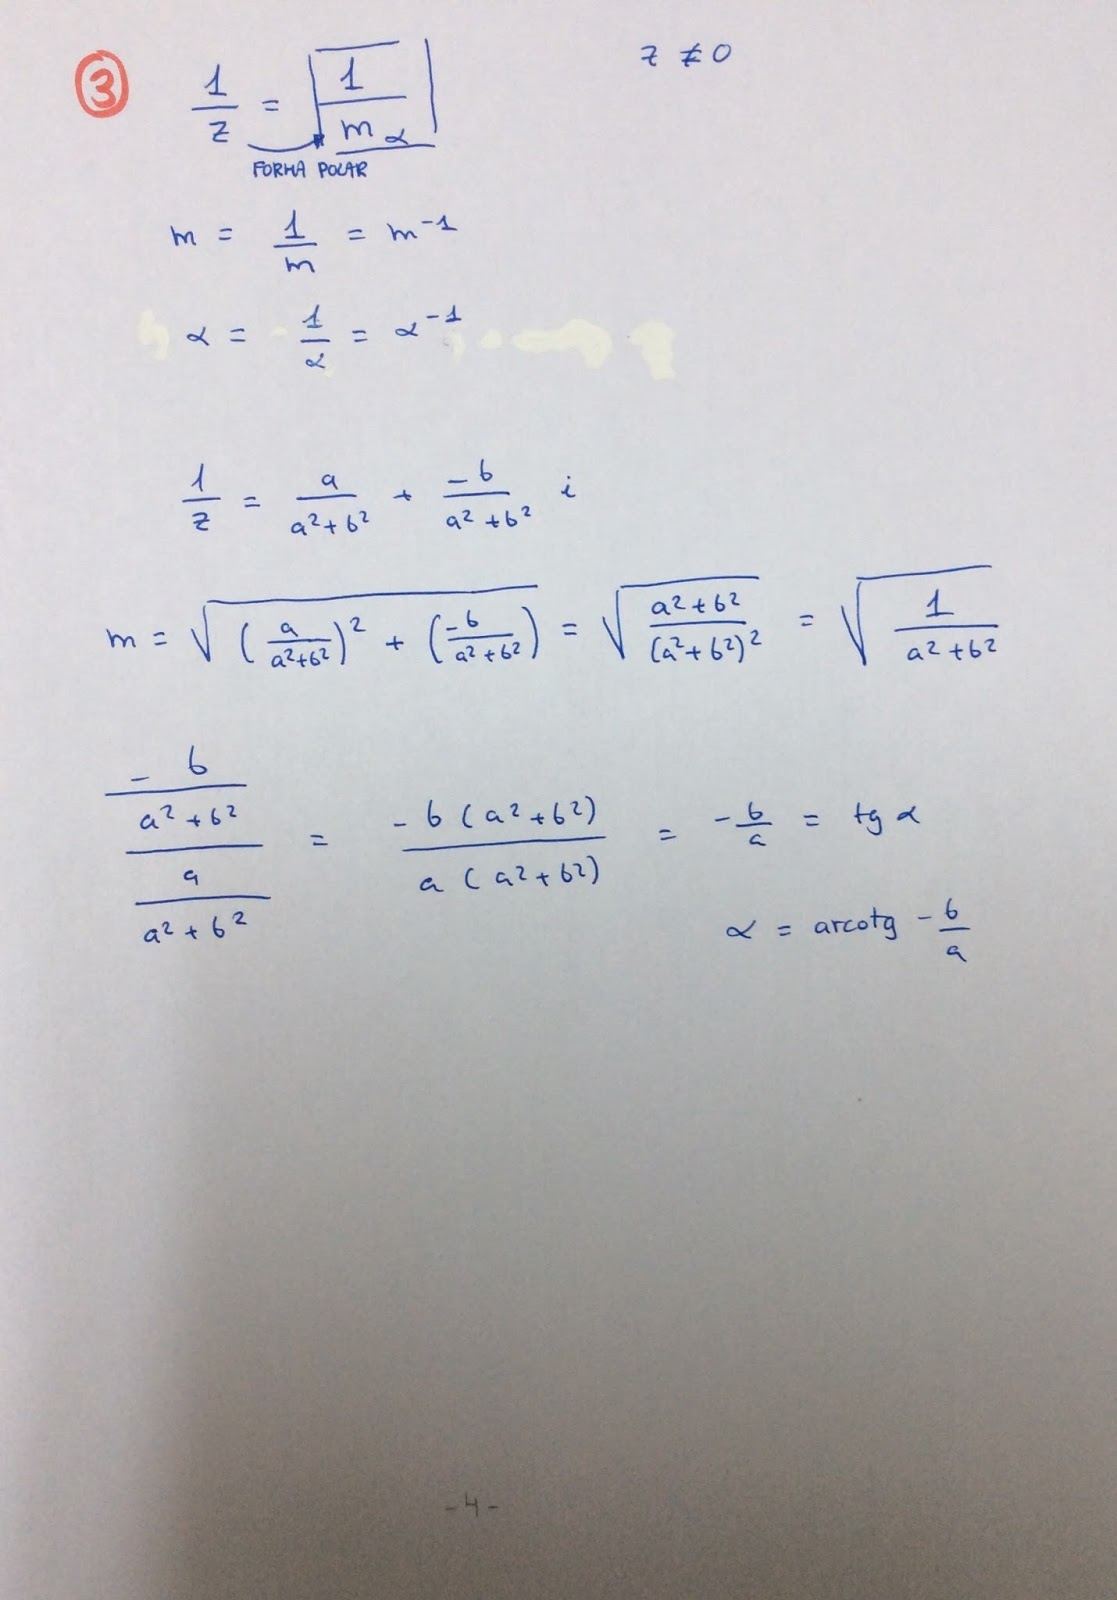 ③ 1/z = 1/m_α z ≠ 0
FORMA POLAR
m = 1/m = m⁻¹
α = 1/α = α⁻¹
1/z = a/(a²+b²) + -b/(a²+b²) i
m = √((a/(a²+b²))² + (-b/(a²+b²))) = √((a²+b²)/(a²+b²)²) = √(1/(a²+b²))
(-b/(a²+b²))/(a/(a²+b²)) = -b(a²+b²)/(a(a²+b²)) = -b/a = tg α
α = arcotg -b/a
-4-